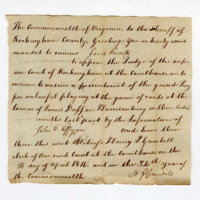 The Commonwealth of Virginia to the Sheriff of
Rockingham County, Greeting: You are hereby
commanded to summon Jacob
to appear the Judge of the supe
rior Court of Rockingham at the Courthouse on to
answer a presentment of the grand Jury
for unlawful playing at the game of cards at the
house of in Harrisonburg within
months last past by the Information of
John and have then
there this writ Witness Henry J Gambill
Clerk of our said Court at the Courthouse on the
day of April 1810, and in the 34th year of
the Commonwealth.
H J Gambill